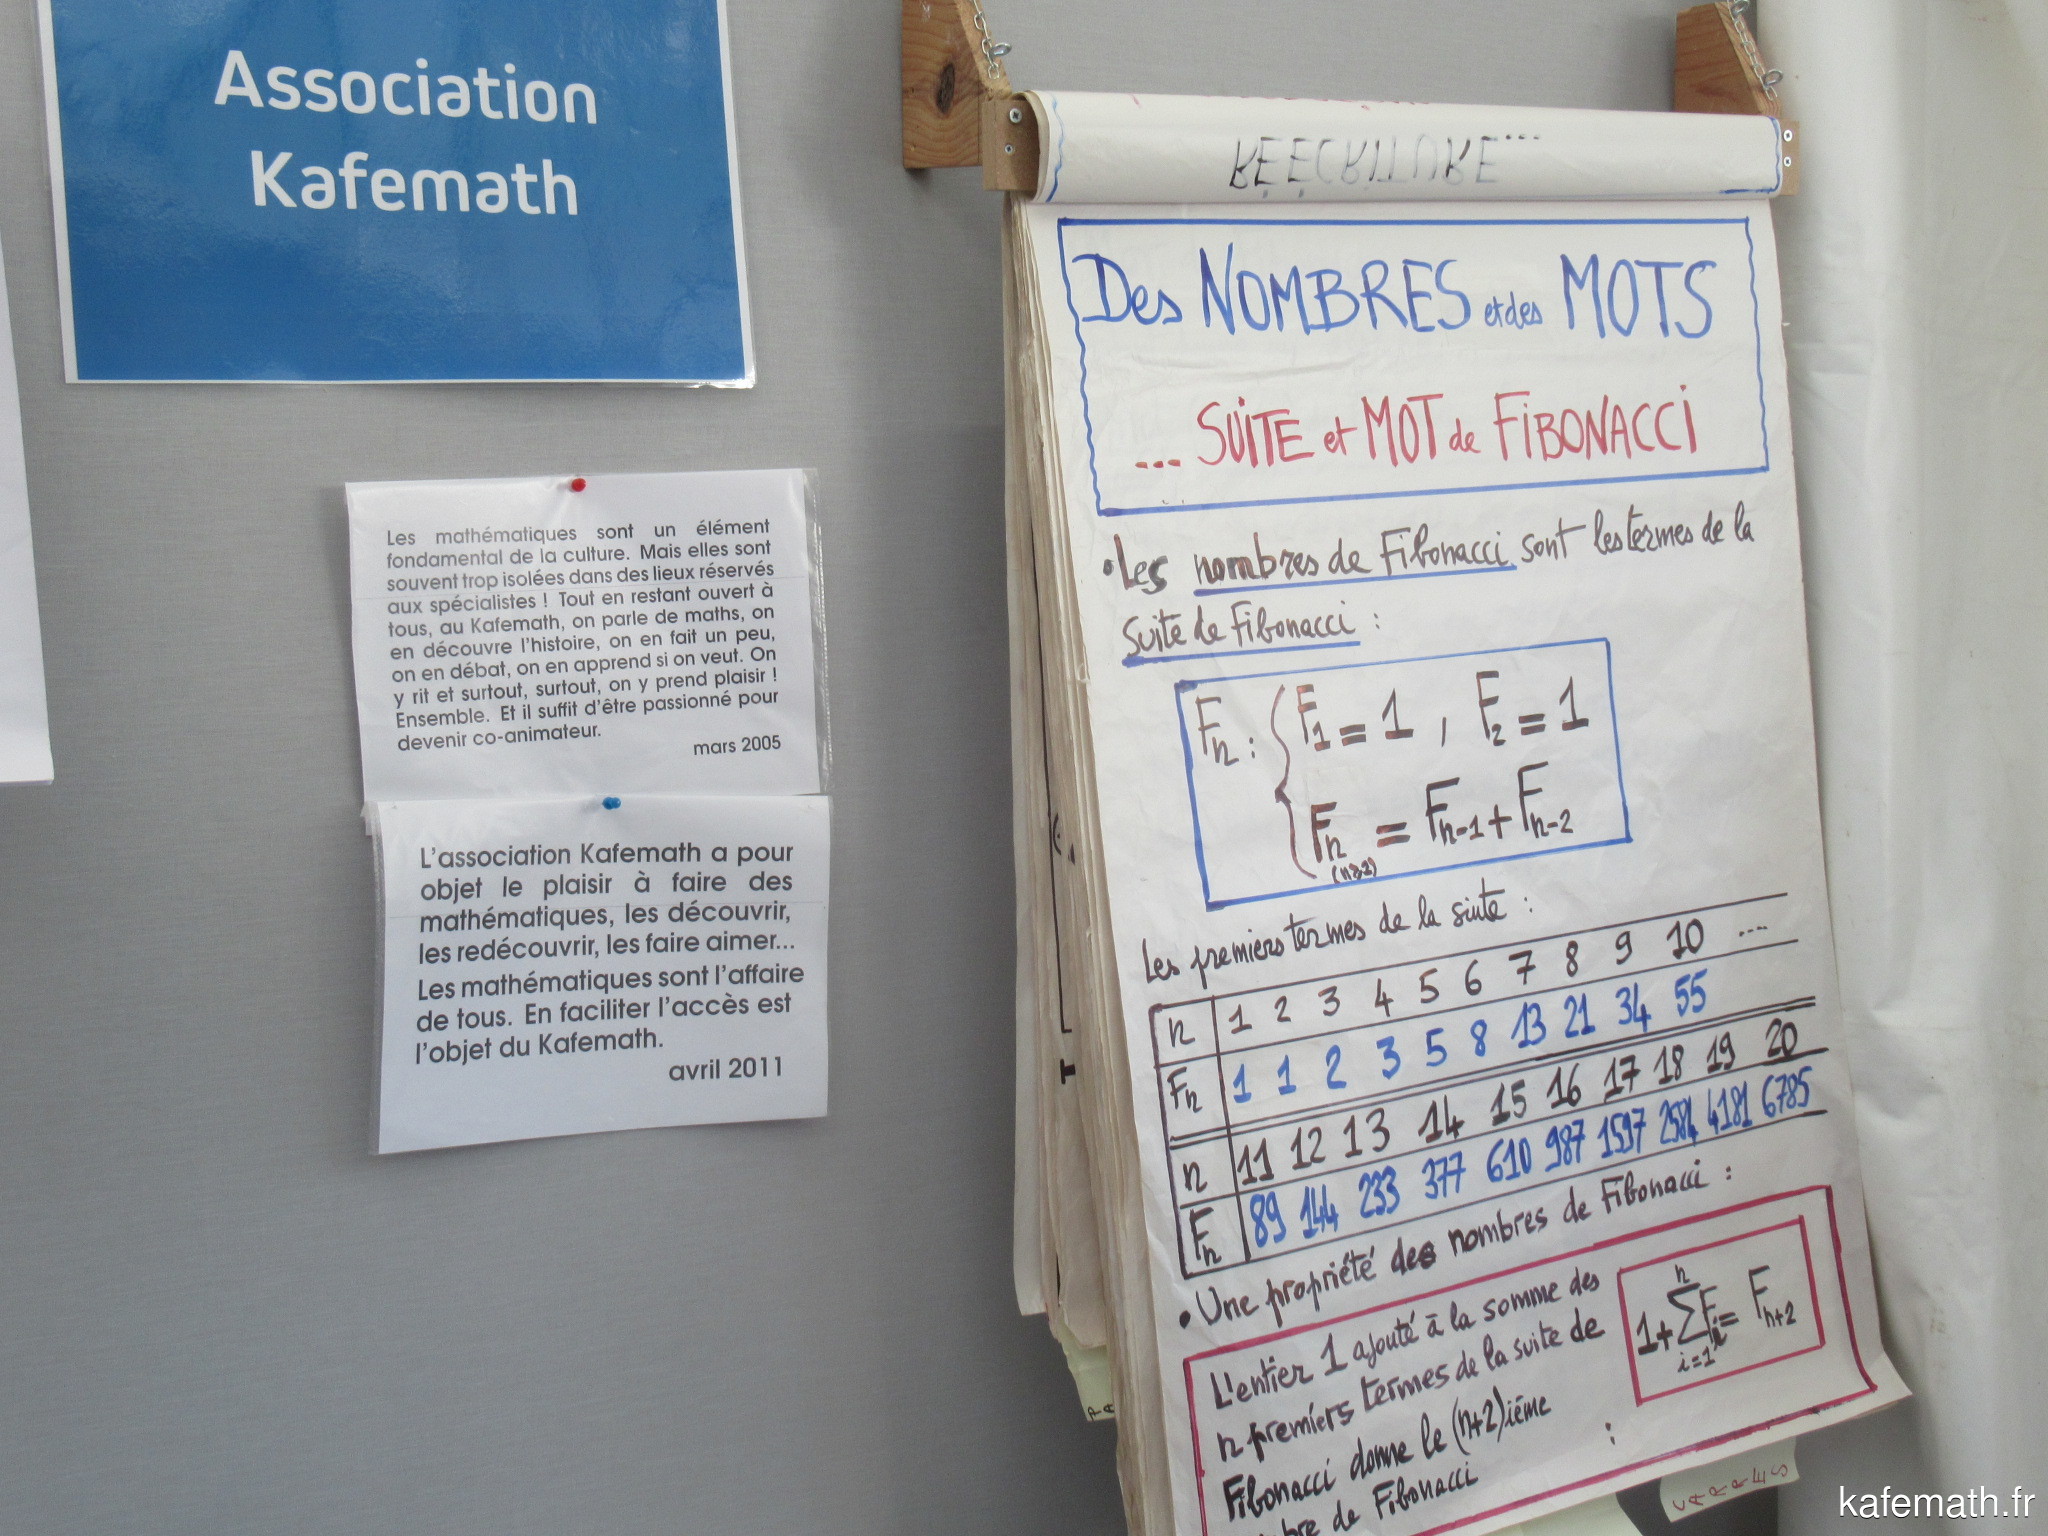 Association
Kafemath
Les mathématiques sont un élément
fondamental de la culture. Mais elles sont
souvent trop isolées dans des lieux réservés
aux spécialistes ! Tout en restant ouvert à
tous, au Kafemath, on parle de maths, on
en découvre l'histoire, on en fait un peu,
on en débat, on en apprend si on veut. On
y rit et surtout, surtout, on y prend plaisir !
Ensemble. Et il suffit d'être passionné pour
devenir co-animateur.
mars 2005
L'association Kafemath a pour
objet le plaisir à faire des
mathématiques, les découvrir,
les redécouvrir, les faire aimer...
Les mathématiques sont l'affaire
de tous. En faciliter l'accès est
l'objet du Kafemath.
avril 2011
RÉÉCRITURE...
Des NOMBRES et des MOTS
... SUITE et MOT de FIBONACCI
• Les nombres de Fibonacci sont les termes de la
Suite de Fibonacci :
Fn : { F1 = 1 , F2 = 1
Fn = Fn-1 + Fn-2
Les premiers termes de la suite :
n 1 2 3 4 5 6 7 8 9 10 ...
Fn 1 1 2 3 5 8 13 21 34 55
n 11 12 13 14 15 16 17 18 19 20
Fn 89 144 233 377 610 987 1597 2584 4181 6785
• Une propriété des nombres de Fibonacci :
L'entier 1 ajouté à la somme des
n premiers termes de la suite de
Fibonacci donne le (n+2)ième
de Fibonacci :
1 + n∑i=1 Fi = Fn+2
CARRÉS
kafemath.fr